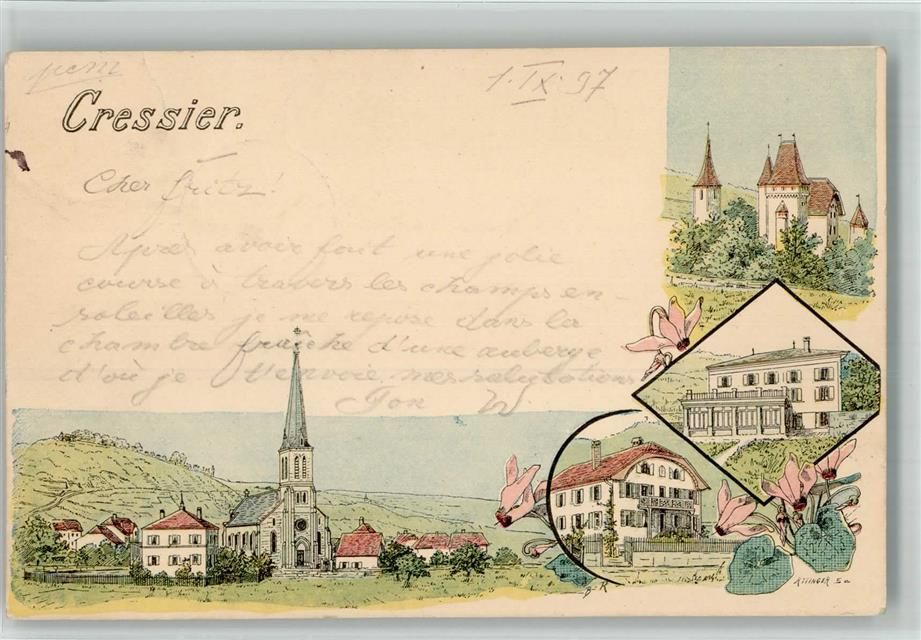 1. IX. 97
Cressier.
Cher Fritz!
Après avoir fait une jolie
course à travers les champs en-
soleillés je me repose dans la
chambre fraîche d'une auberge
d'où je t'envoie mes salutations
Ton W